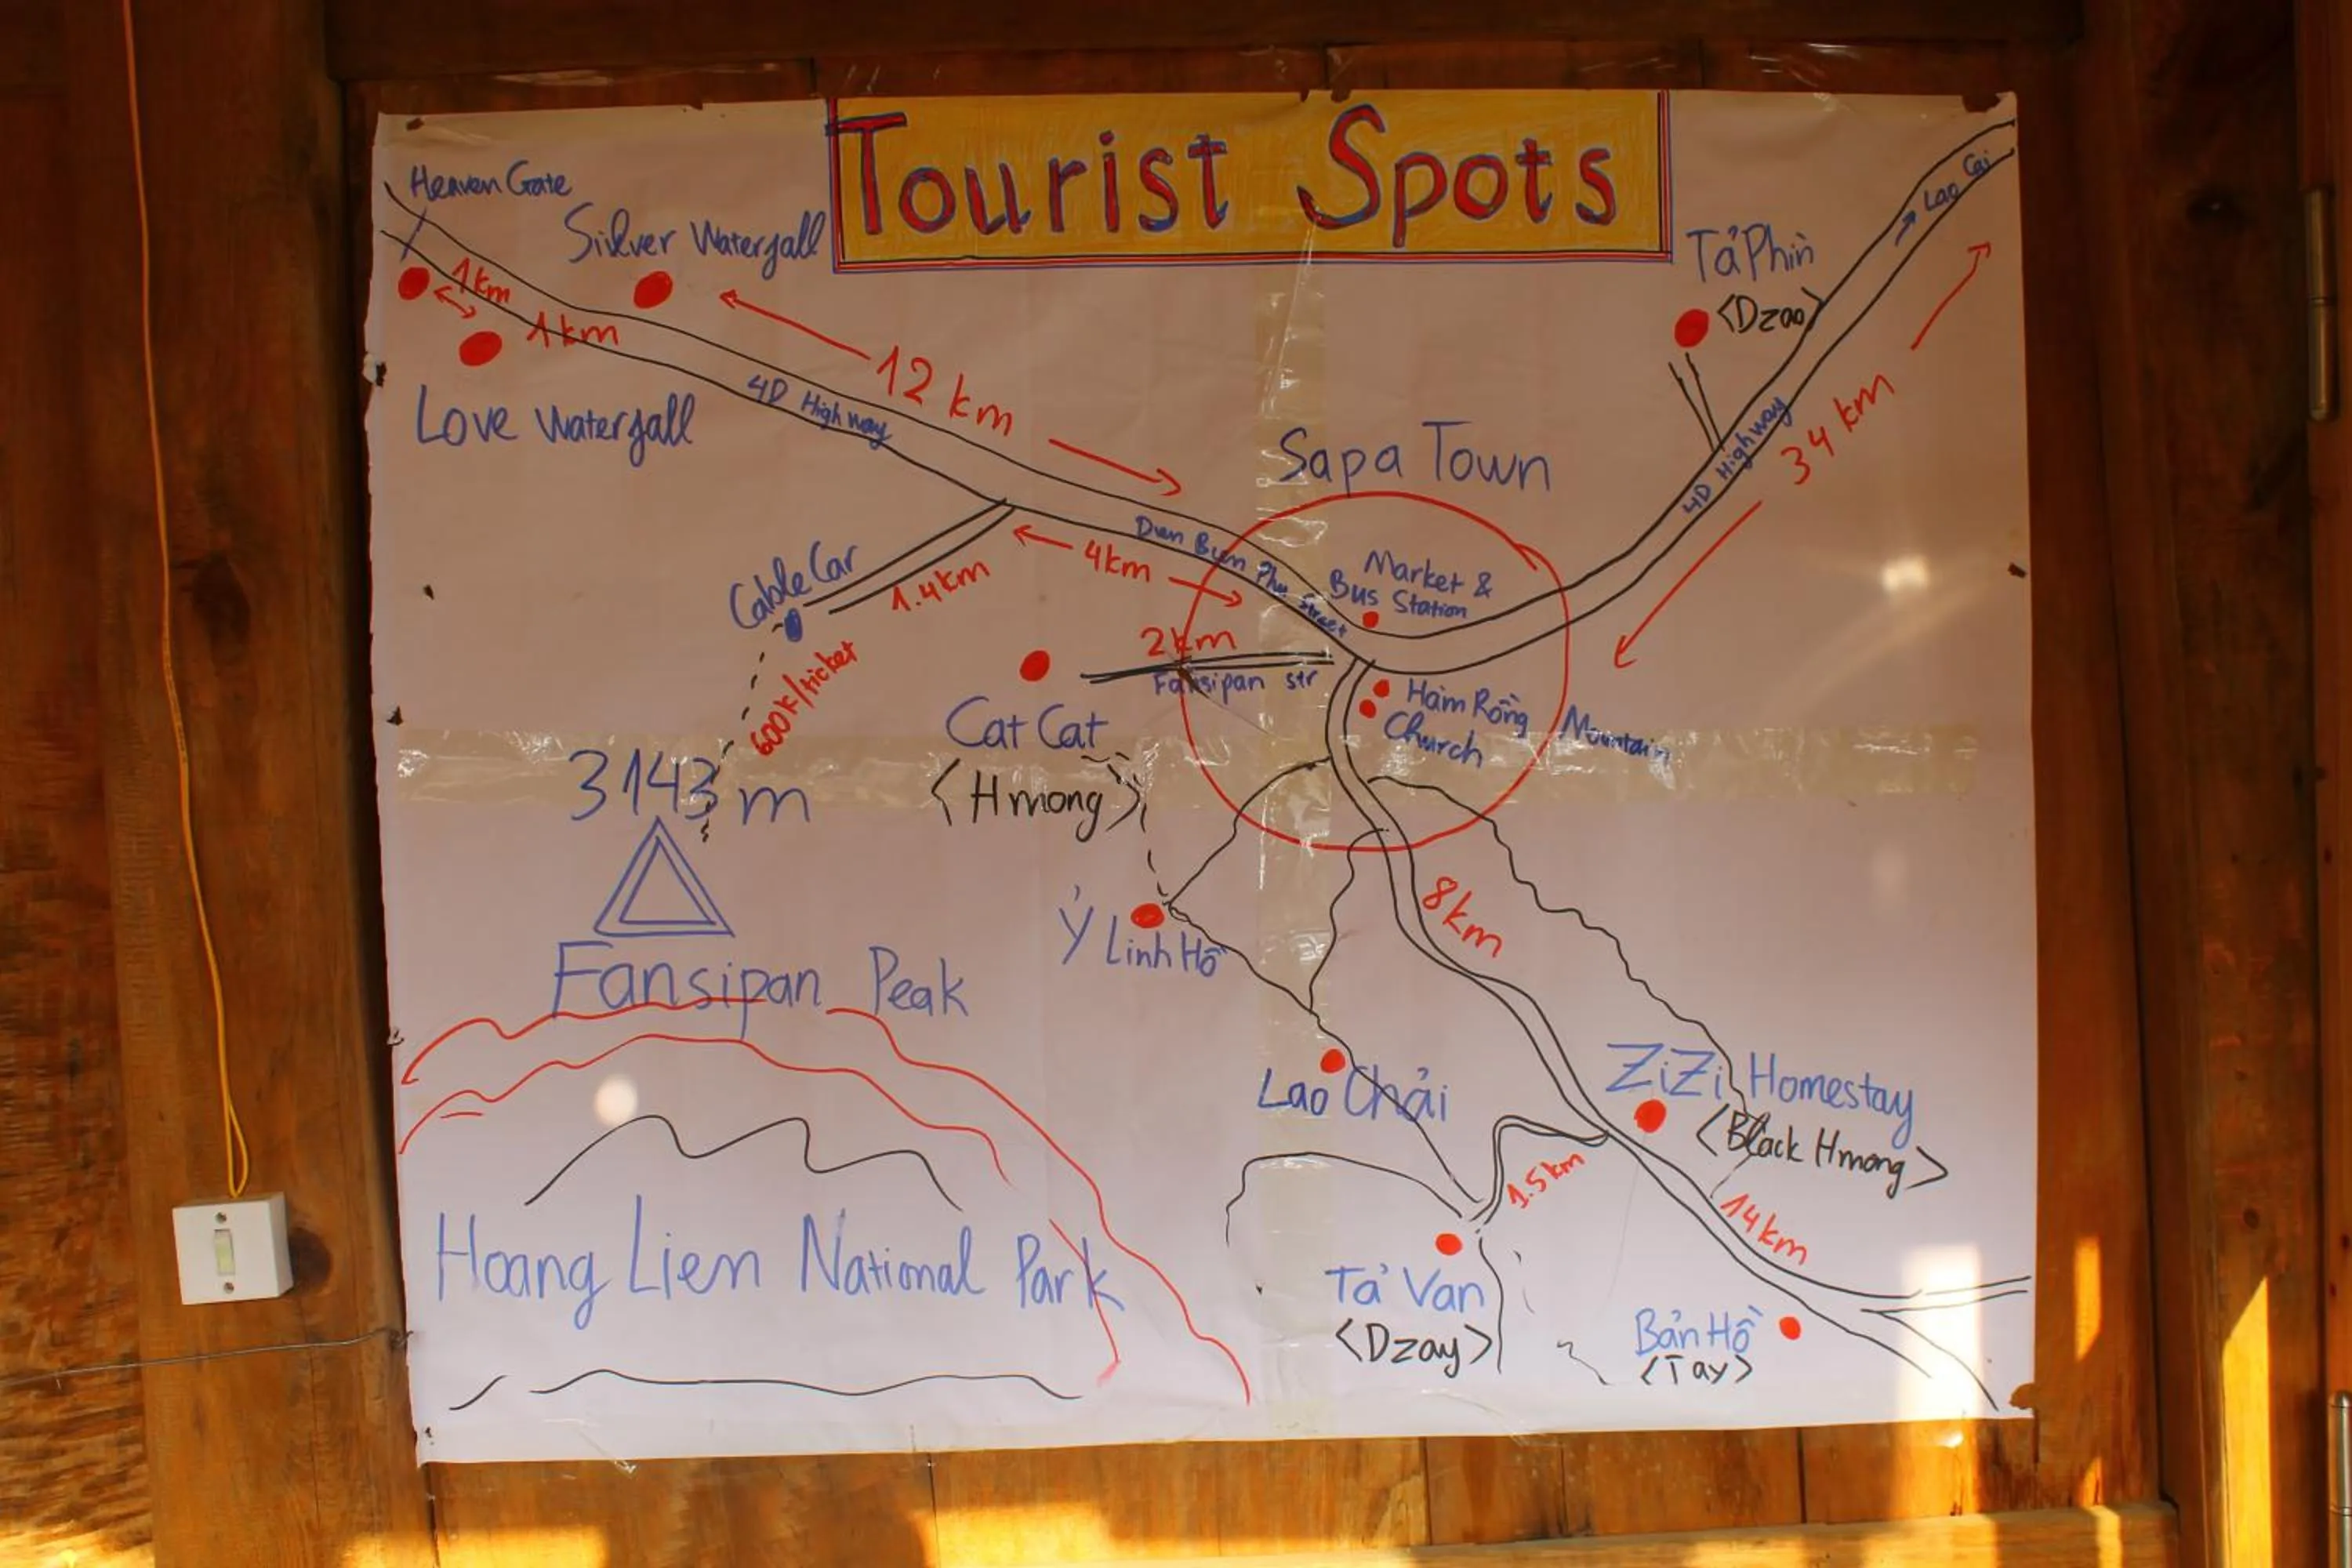 Tourist Spots
Heaven Gate
Silver Waterfall
1km
1km
Love Waterfall
12 km
4D Highway
Tả Phìn
<Dzao>
→ Lao Cai
34 km
4D Highway
Sapa Town
Market &
Bus Station
Dien Bien Phu Street
4km
Cable Car
1.4km
600k/ticket
2km
Fansipan str
Hàm Rồng Mountain
Church
Cat Cat
<Hmong>
3143 m
Fansipan Peak
Ỷ Linh Hồ
8km
Lao Chải
ZiZi Homestay
<Black Hmong>
1.5km
14km
Hoang Lien National Park
Tả Van
<Dzay>
Bản Hồ
<Tay>